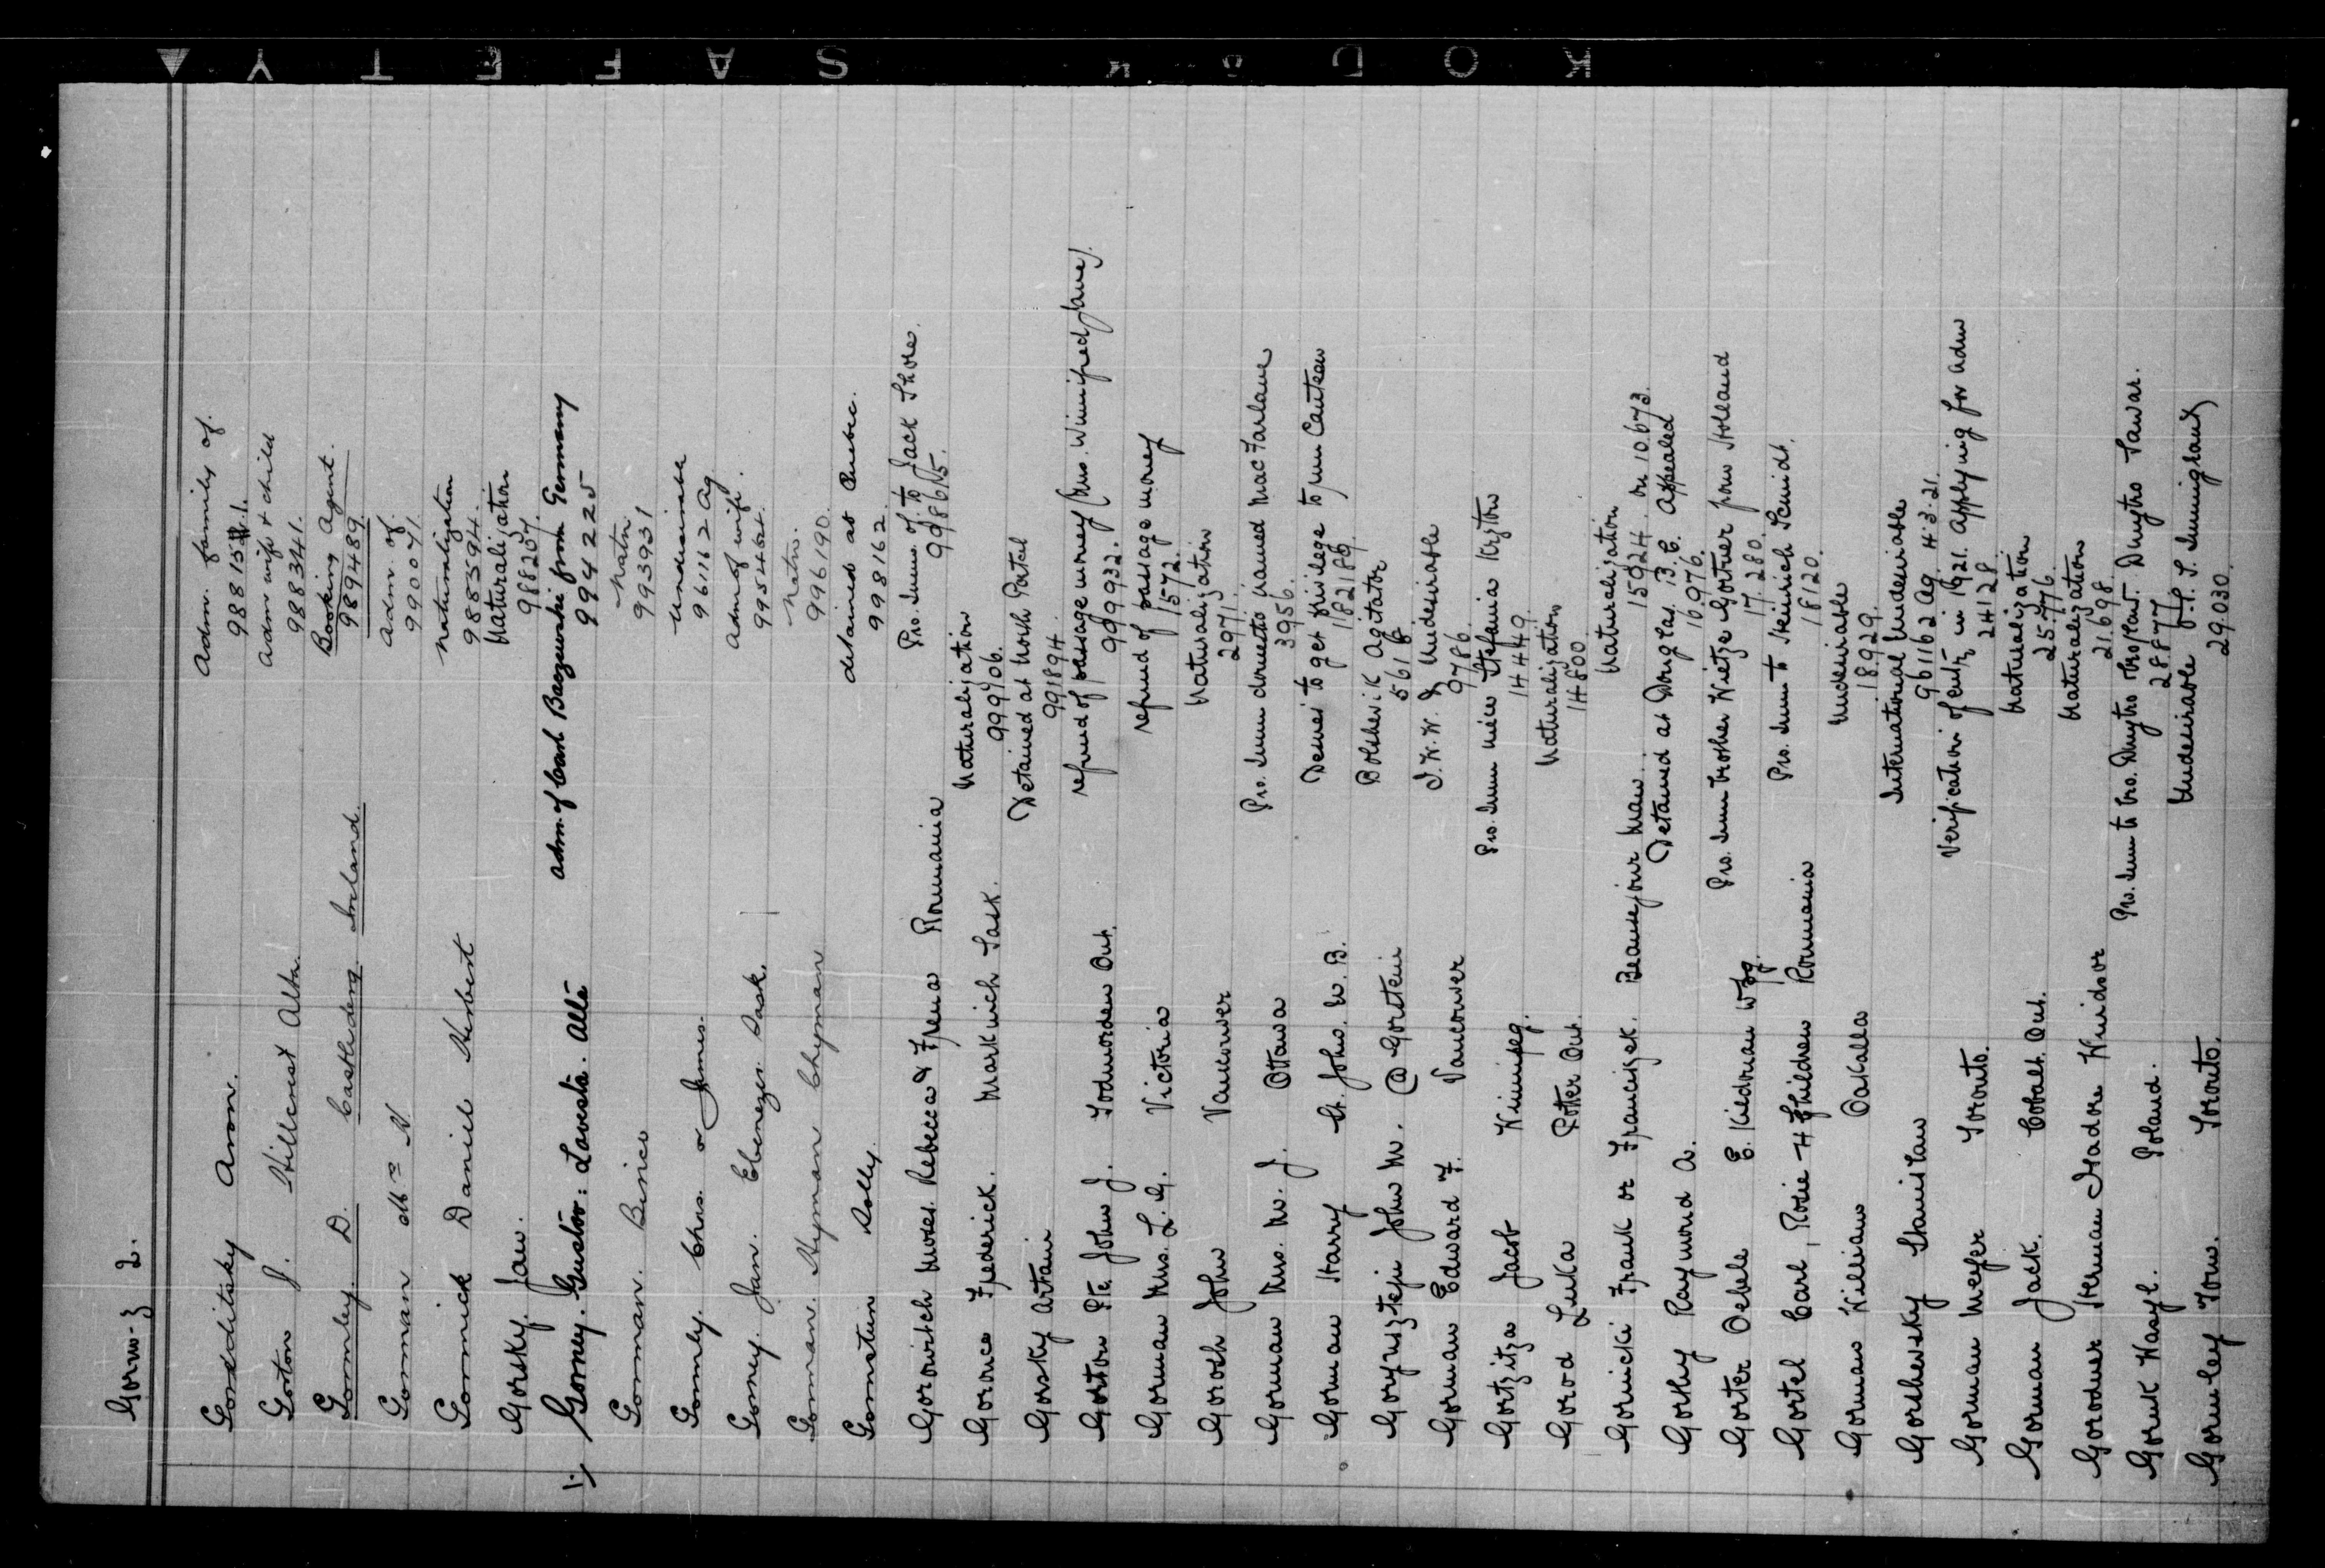 Gorm-z 2.
Gorodditsky Aron. Adm. family of.
988 15 1.
Gorton J. Hillcrest Alta. Adm wife & child
988 3341.
Gormley. D. Castlederg. Ireland. Booking Agent.
989489.
Gorman N. Adm. of.
990071.
Gormick Daniel Herbert Naturalization
9883594.
Gorsky. Jan. Naturalization
988207.
Gorney. Gustov: Lavesta. Alta adm. of Carl Baszewski from Germany
994 2225
Gorman. Binico Natn.
993931
Gormly. Chas. or James. Undesirable
961162 Ag
Gorney. Jan. Ebenezer. Sask. Adm of wife.
995464.
Gorman. Hyman Chyman Natn.
996190.
Gornstein Dolly. detained at Quebec.
998162.
Gorowitch Moses. Rebecca & Frena Roumania Pro. Imm. of. to Jack Shore.
998615.
Goronce Frederick. Markinch Sask. Naturalization
999706.
Gorsky Artain Detained at North Portal
991894.
Gorton Pte. John J. Todmorden Ont. refund of passage money (Mrs. Winnifred Jane).
999932.
Gorman Mrs. L. G. Victoria refund of passage money
1572.
Gorosh John Vancouver Naturalization
2971.
Gorman Mrs. M. J. Ottawa Pro. Imm domestic named MacFarlane
3956.
Gorman Harry St. John. N. B. Desires to get privilege to run Canteen
182189.
John M. @ Gorstein Bolshevik Agitator
5618
Gorman Edward F. Vancouver I. W. W. & Undesirable
9786.
Gortzitza Jacob Winnipeg. Pro. Imm niece Stefania Kryton
14449.
Gorod Luka Potter Ont. Naturalization
14800.
Gornicki Frank or Franciszek. Beausejour Man. Naturalization
15924. on 10673.
Gorthy Raymond A. Detained at Douglas. B. C. Appealed
16976.
Gorter Oebele E. Kildonan Wpg. Pro. Imm brother Wietze Gortner from Holland
17280.
Gortel Carl, Rosie & 4 Children Roumania Pro. Imm to Heinrich Scmidt.
18120.
Gorman William Oakalla Undesirable
18929.
Gorshersky Stanislaw International Undesirable
961162 Ag. 4.3.21.
Gorman Meyer Toronto. Verification of entry in 1921. Applying for adm
24128
Gorman Jack. Cobalt. Ont. Naturalization
25776.
Gorodner Herman Isadore Windsor Naturalization
21698.
Gornuk Wasyl. Poland. Pro. Imm to bro. Dmytro
28877.
Gormley Thos. Toronto. Undesirable Immigrant)
29.030
KODAK SAFETY